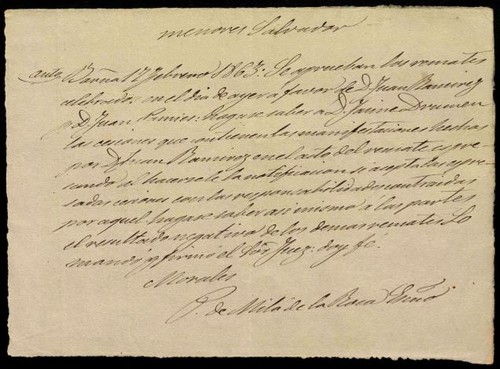 menores Salvador
auto Barña 17 Febrero 1863: Se aprueban los remates
celebrados en el dia de ayer a favor de D. Juan Ramirez
y D. Juan hagase saber a D. Jaime
las cesiones que contienen las manifestaciones hechas
por D. Juan Ramirez en el acto del remate espre
sando al hacerle la notificacion si acepta las espre
sadas cesiones con las responsabilidades contraidas
por aquel hagase saber asi mismo a las partes
el resultado negativo de los demas remates. Lo
mandó y firmó el Sor. Juez. doy fe.
Morales
P. de Milá de la Roca Esno